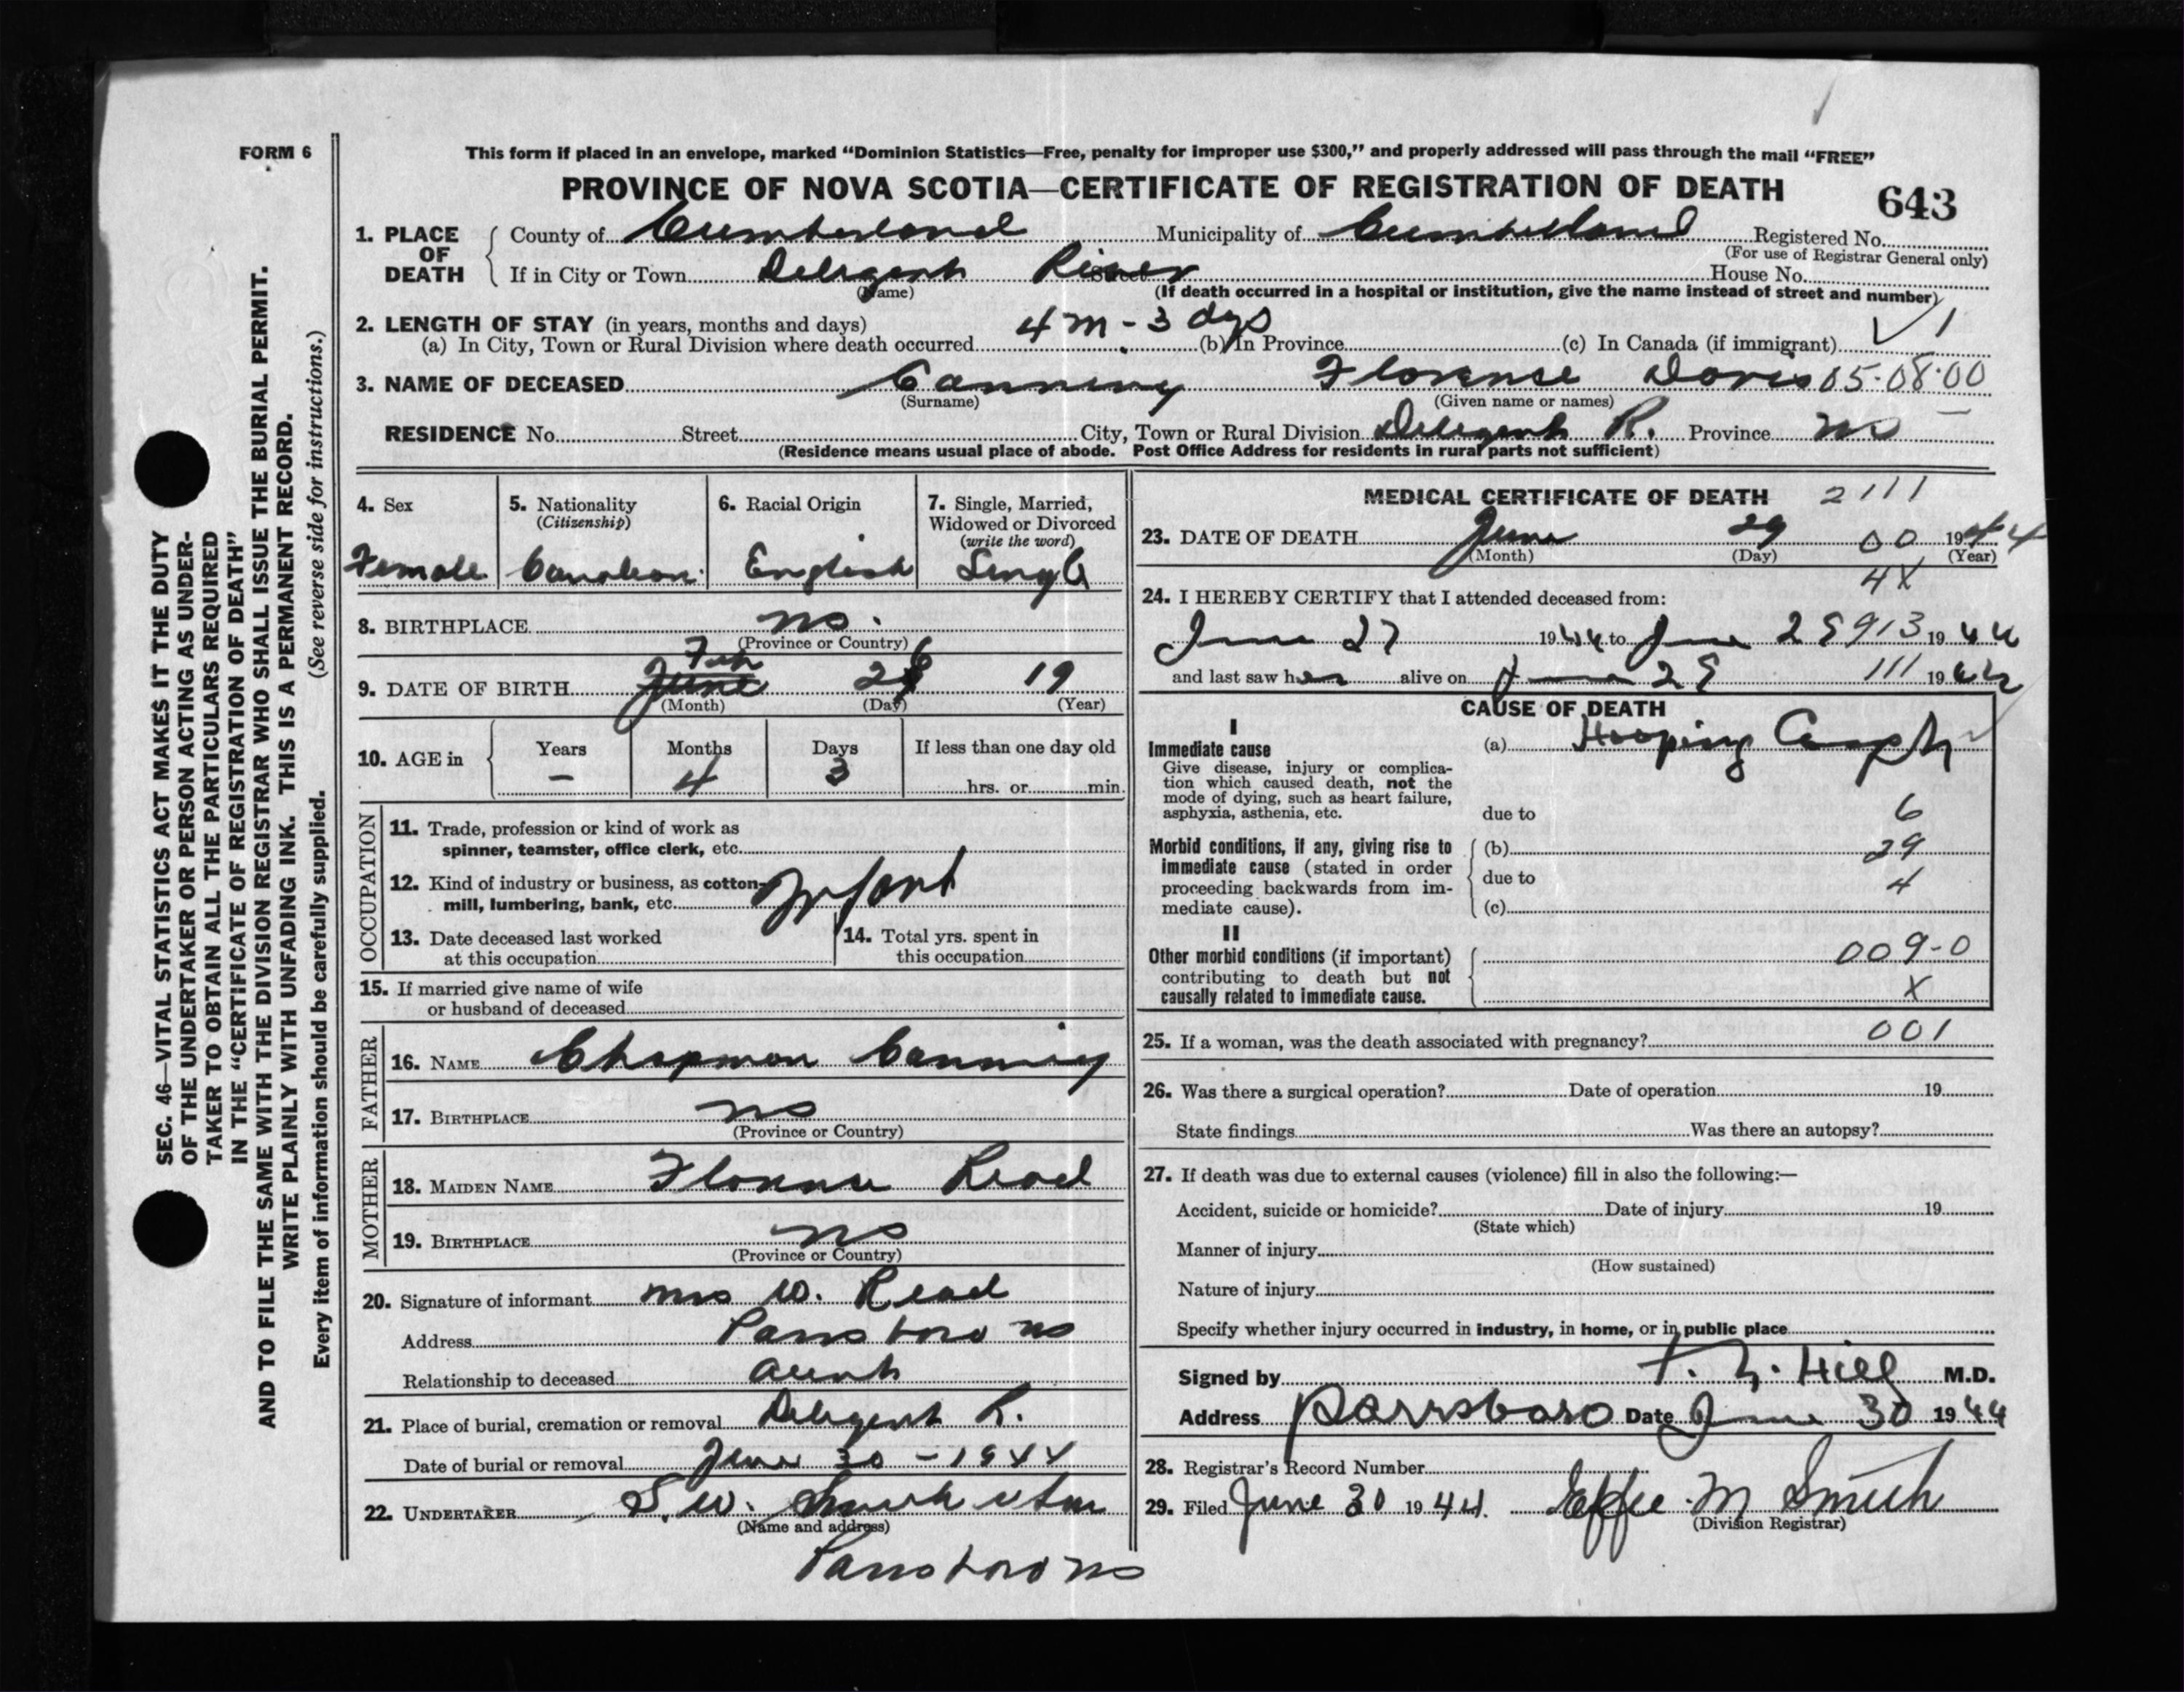 FORM 6
This form if placed in an envelope, marked "Dominion Statistics—Free, penalty for improper use $300," and properly addressed will pass through the mail "FREE"
PROVINCE OF NOVA SCOTIA—CERTIFICATE OF REGISTRATION OF DEATH
643
1. PLACE OF DEATH County of Cumberland Municipality of Cumberland Registered No.
(For use of Registrar General only)
If in City or Town Deligent River Street House No.
(Name) (If death occurred in a hospital or institution, give the name instead of street and number)
2. LENGTH OF STAY (in years, months and days) 4 m - 3 dys
(a) In City, Town or Rural Division where death occurred (b) In Province (c) In Canada (if immigrant) 1
3. NAME OF DECEASED Canning Florense Doris 05-08-00
(Surname) (Given name or names)
RESIDENCE No. Street City, Town or Rural Division Deligent R. Province NS
(Residence means usual place of abode. Post Office Address for residents in rural parts not sufficient)
4. Sex
Female
5. Nationality
(Citizenship)
Canadian
6. Racial Origin
English
7. Single, Married,
Widowed or Divorced
(write the word)
Single
8. BIRTHPLACE NS.
(Province or Country)
Feb 6
9. DATE OF BIRTH June 2 19
(Month) (Day) (Year)
10. AGE in Years Months Days If less than one day old
— 4 3 hrs. or min.
OCCUPATION
11. Trade, profession or kind of work as
spinner, teamster, office clerk, etc.
12. Kind of industry or business, as cotton-
mill, lumbering, bank, etc. Infant
13. Date deceased last worked
at this occupation
14. Total yrs. spent in
this occupation
15. If married give name of wife
or husband of deceased
FATHER
16. NAME Chapman Canning
17. BIRTHPLACE NS
(Province or Country)
MOTHER
18. MAIDEN NAME Florence Read
19. BIRTHPLACE NS
(Province or Country)
20. Signature of informant Mrs W. Read
Address Parrsboro NS
Relationship to deceased Aunt
21. Place of burial, cremation or removal Deligent R.
Date of burial or removal June 30 - 1944
22. UNDERTAKER S. W. Smith & Son
(Name and address)
Parrsboro NS
MEDICAL CERTIFICATE OF DEATH 2111
23. DATE OF DEATH June 29 00 1944
(Month) (Day) (Year)
4X
24. I HEREBY CERTIFY that I attended deceased from:
June 27 1944 to June 29 913 1944
and last saw her alive on June 29 111 1944
CAUSE OF DEATH
I
Immediate cause
Give disease, injury or complica-
tion which caused death, not the
mode of dying, such as heart failure,
asphyxia, asthenia, etc.
(a) Hooping Cough
due to 6
Morbid conditions, if any, giving rise to
immediate cause (stated in order
proceeding backwards from im-
mediate cause).
(b) 29
due to 4
(c)
II
Other morbid conditions (if important)
contributing to death but not
causally related to immediate cause.
009-0
X
25. If a woman, was the death associated with pregnancy? 001
26. Was there a surgical operation? Date of operation 19
State findings Was there an autopsy?
27. If death was due to external causes (violence) fill in also the following:—
Accident, suicide or homicide? Date of injury 19
(State which)
Manner of injury
(How sustained)
Nature of injury
Specify whether injury occurred in industry, in home, or in public place
Signed by Hill M.D.
Address Parrsboro Date June 30 1944
28. Registrar's Record Number
29. Filed June 30 1944. Effie M Smith
(Division Registrar)
SEC. 46—VITAL STATISTICS ACT MAKES IT THE DUTY
OF THE UNDERTAKER OR PERSON ACTING AS UNDER-
TAKER TO OBTAIN ALL THE PARTICULARS REQUIRED
IN THE "CERTIFICATE OF REGISTRATION OF DEATH"
AND TO FILE THE SAME WITH THE DIVISION REGISTRAR WHO SHALL ISSUE THE BURIAL PERMIT.
WRITE PLAINLY WITH UNFADING INK. THIS IS A PERMANENT RECORD.
Every item of information should be carefully supplied. (See reverse side for instructions.)